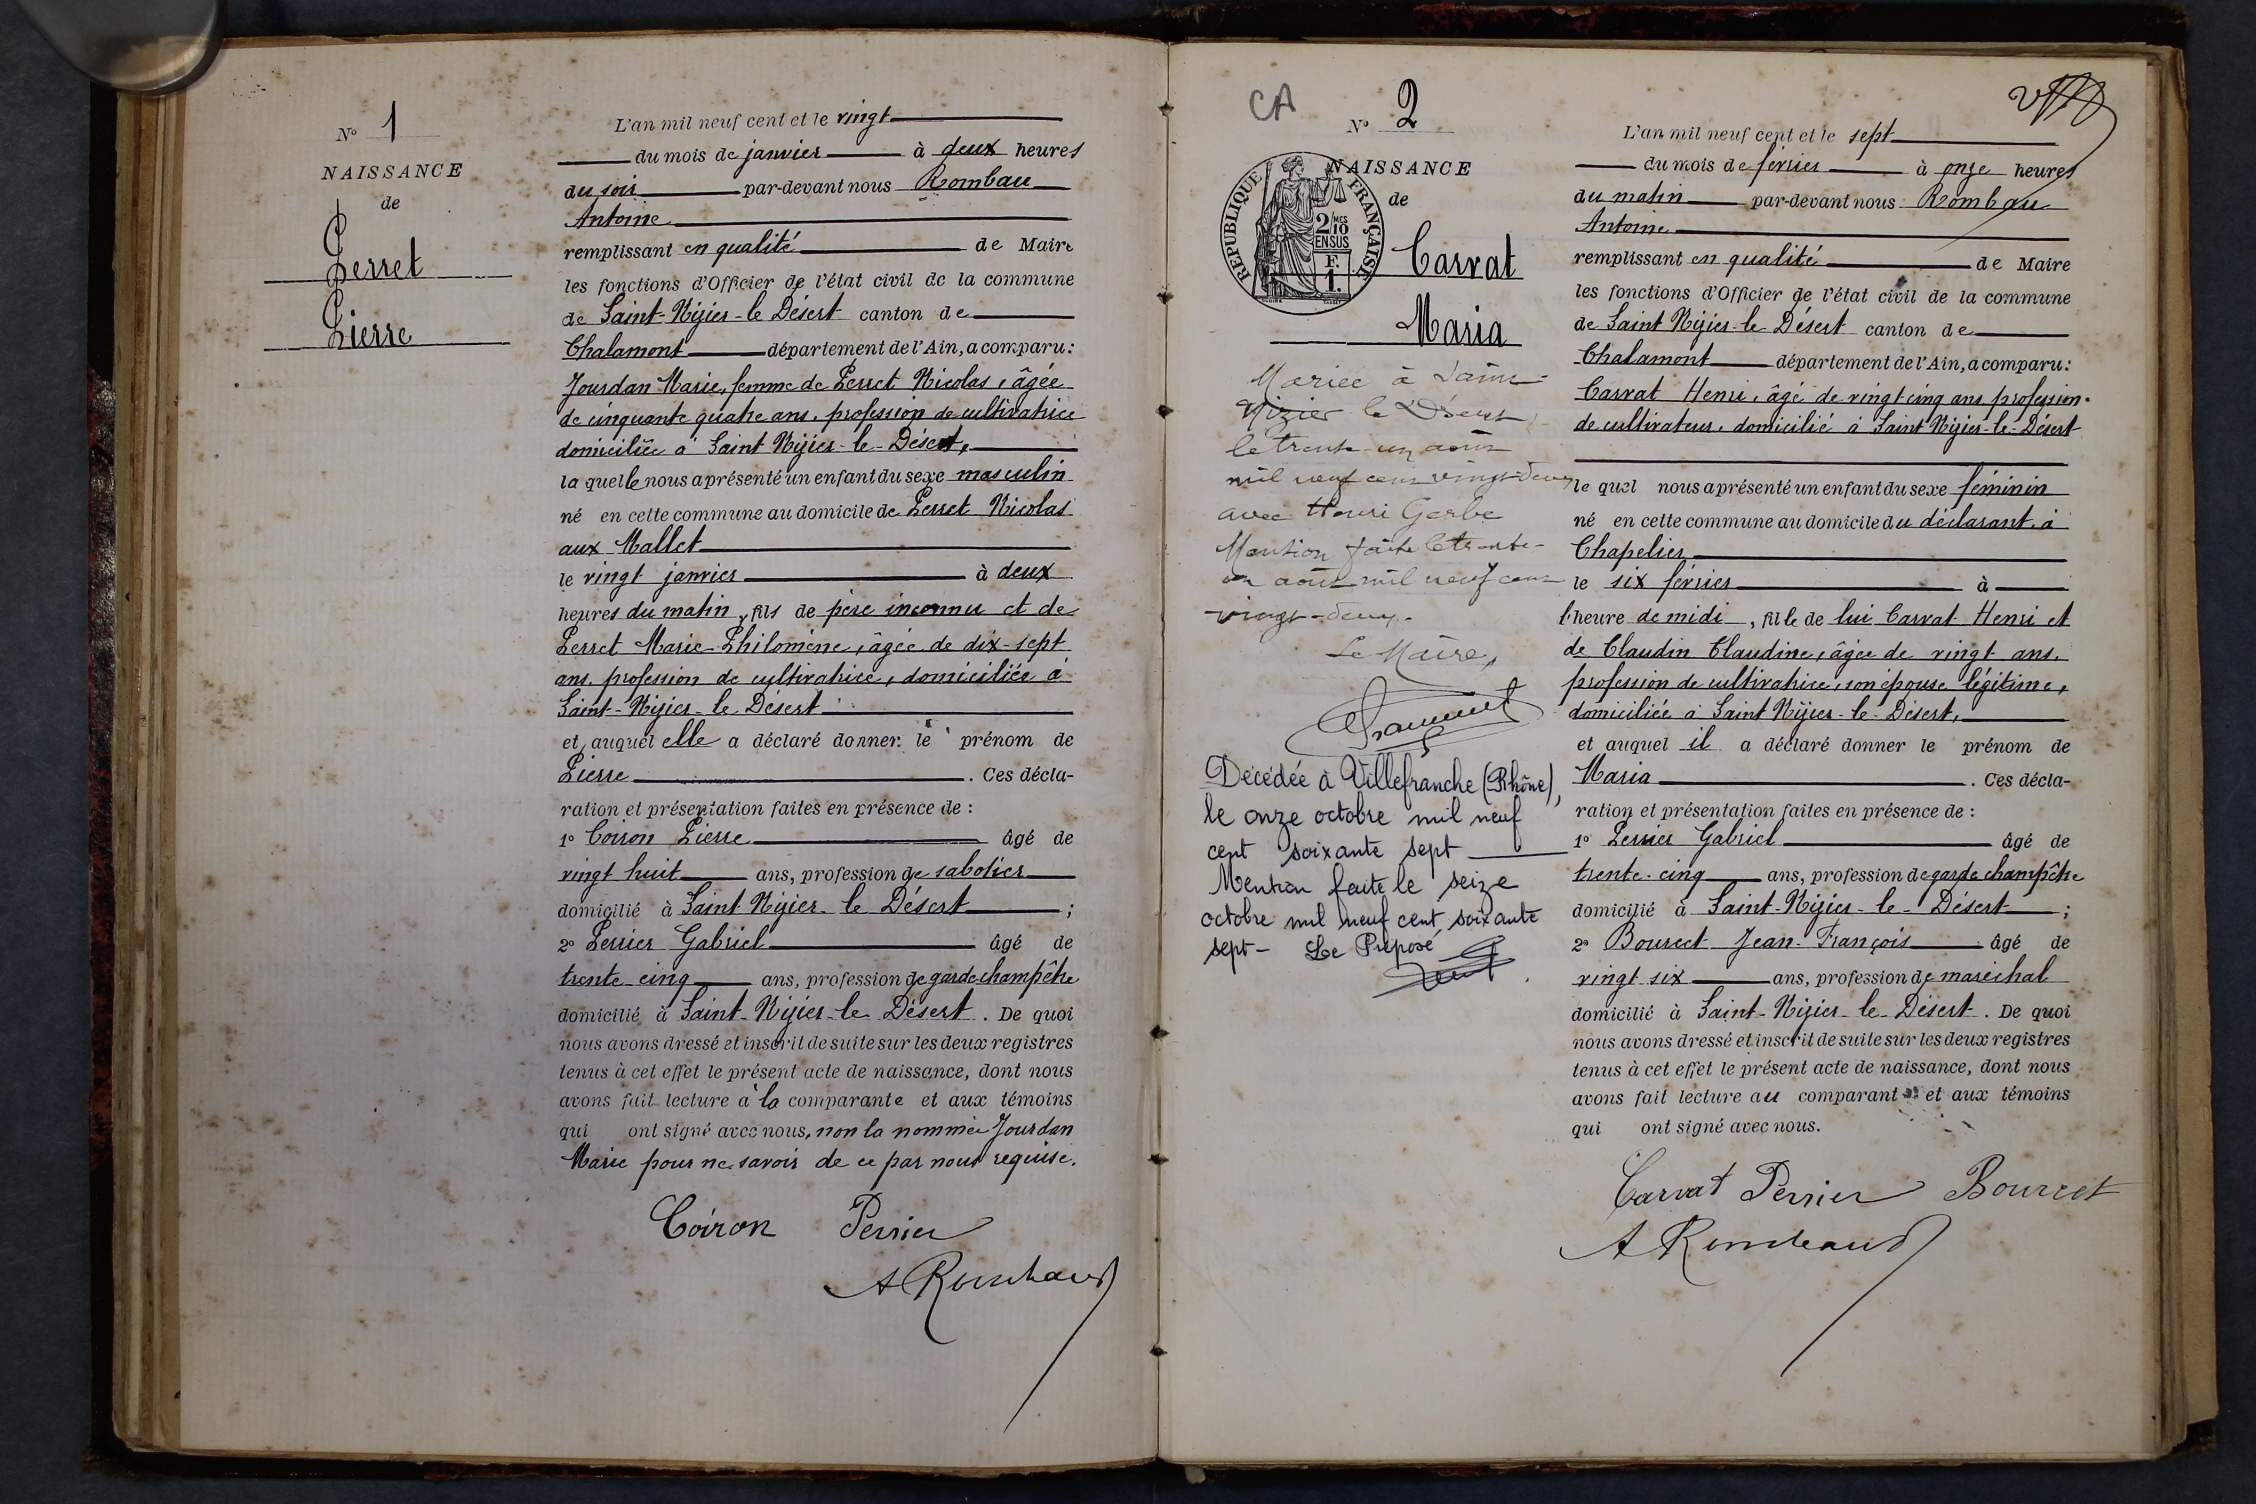 N° 1
NAISSANCE
de
Perret
Pierre
L'an mil neuf cent et le vingt
du mois de janvier à deux heures
du soir par-devant nous Rombau
Antoine
remplissant en qualité de Maire
les fonctions d'Officier de l'état civil de la commune
de Saint-Nizier-le Désert canton de
Chalamont département de l'Ain, a comparu:
Jourdan Marie, femme de Perret Nicolas, âgée
de cinquante quatre ans, profession de cultivatrice
domiciliée à Saint Nizier-le-Désert,
la quelle nous a présenté un enfant du sexe masculin
né en cette commune au domicile de Perret Nicolas
aux Mallet
le vingt janvier à deux
heures du matin, fils de père inconnu et de
Perret Marie-Philomène, âgée de dix-sept
ans, profession de cultivatrice, domiciliée à
Saint-Nizier-le Désert
et auquel elle a déclaré donner le prénom de
Pierre. Ces décla-
ration et présentation faites en présence de :
1° Coiron Pierre âgé de
vingt huit ans, profession de sabotier
domicilié à Saint Nizier-le Désert ;
2° Perrier Gabriel âgé de
trente cinq ans, profession de garde champêtre
domicilié à Saint-Nizier-le Désert. De quoi
nous avons dressé et inscrit de suite sur les deux registres
tenus à cet effet le présent acte de naissance, dont nous
avons fait lecture à la comparante et aux témoins
qui ont signé avec nous, non la nommée Jourdan
Marie pour ne savoir de ce par nous requise.
Coiron Perrier
A Rombaud
CA
N° 2
NAISSANCE
de
RÉPUBLIQUE FRANÇAISE
2/10 MES
EN SUS
F.
1.
Carvat
Maria
Mariée à Saint-
Nizier le Désert
le trente-un août
mil neuf cent vingt-deux
avec Henri Gerbe
Mention faite le trente-
un août mil neuf cent
vingt-deux.
Le Maire,
Décédée à Villefranche (Rhône),
le onze octobre mil neuf
cent soixante sept
Mention faite le seize
octobre mil neuf cent soixante
sept - Le Préposé
L'an mil neuf cent et le sept
du mois de février à onze heures
du matin par-devant nous Rombau
Antoine
remplissant en qualité de Maire
les fonctions d'Officier de l'état civil de la commune
de Saint Nizier-le-Désert canton de
Chalamont département de l'Ain, a comparu:
Carvat Henri, âgé de vingt cinq ans, profession
de cultivateur, domicilié à Saint Nizier-le-Désert
le quel nous a présenté un enfant du sexe féminin
né en cette commune au domicile du déclarant, à
Chapelier
le six février à
l'heure de midi, fille de lui Carvat Henri et
de Claudin Claudine, âgée de vingt ans,
profession de cultivatrice, son épouse légitime,
domiciliée à Saint Nizier-le-Désert,
et auquel il a déclaré donner le prénom de
Maria. Ces décla-
ration et présentation faites en présence de :
1° Perrier Gabriel âgé de
trente-cinq ans, profession de garde champêtre
domicilié à Saint-Nizier-le-Désert ;
2° Bourcet Jean-François âgé de
vingt six ans, profession de maréchal
domicilié à Saint-Nizier-le Désert. De quoi
nous avons dressé et inscrit de suite sur les deux registres
tenus à cet effet le présent acte de naissance, dont nous
avons fait lecture au comparant et aux témoins
qui ont signé avec nous.
Carvat Perrier Bourcet
A Rombaud